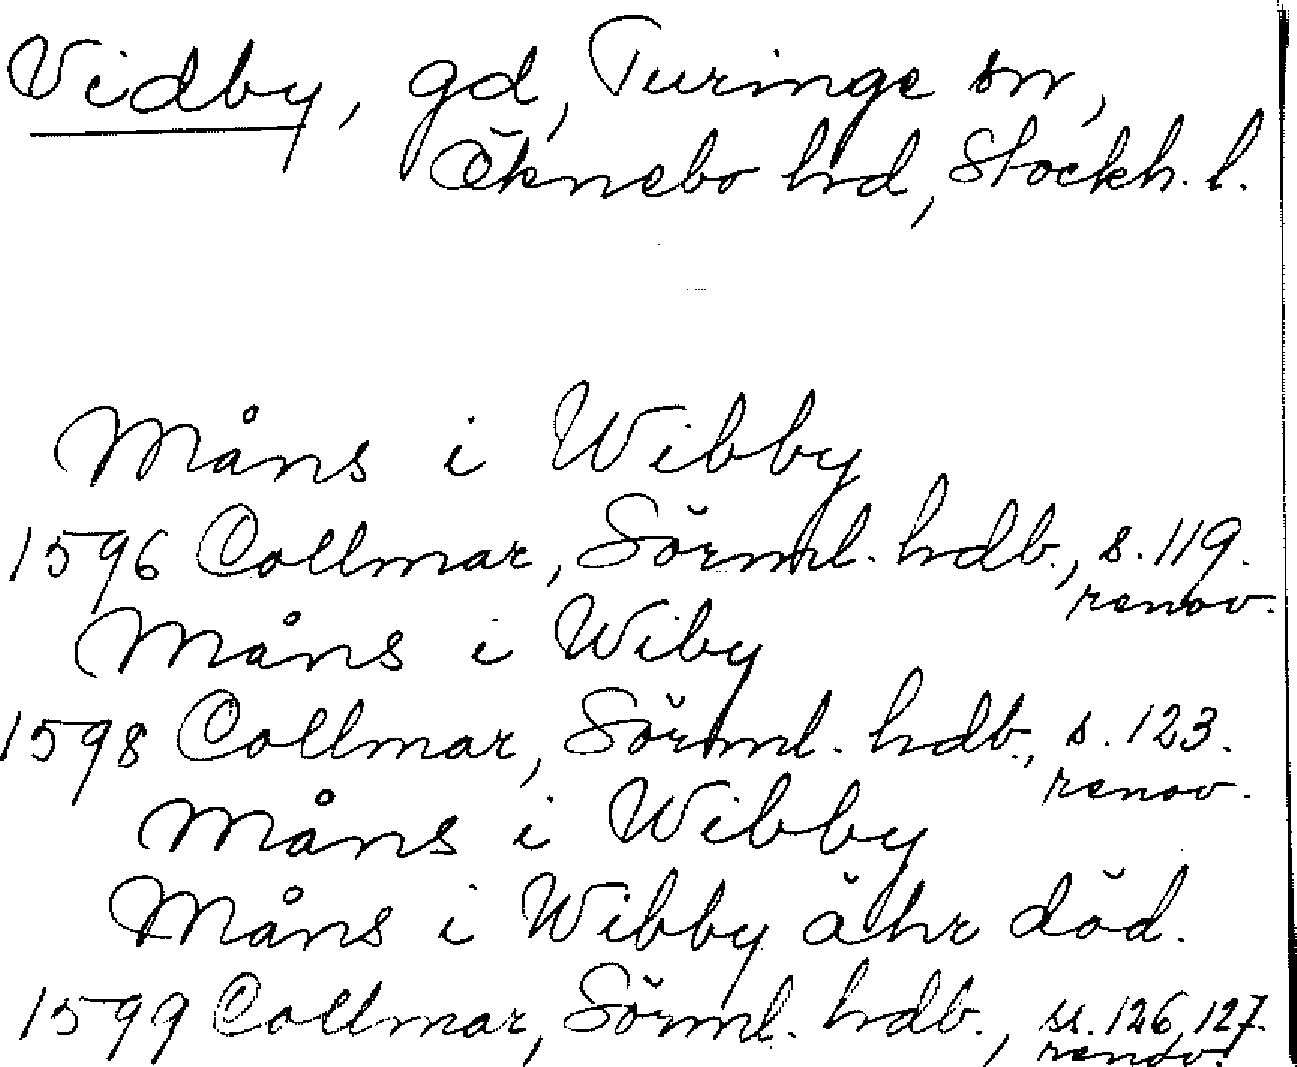 Vidby, gd, Turinge sn,
Öknebo hrd, Stockh. l.
Måns i Wibby
1596 Collmar, Sörml. hdb., s. 119.
renov.
Måns i Wiby
1598 Collmar, Sörml. hdb., s. 123.
renov.
Måns i Wibby
Måns i Wibby ähr död.
1599 Collmar, Sörml. hdb., ss. 126, 127.
renov.